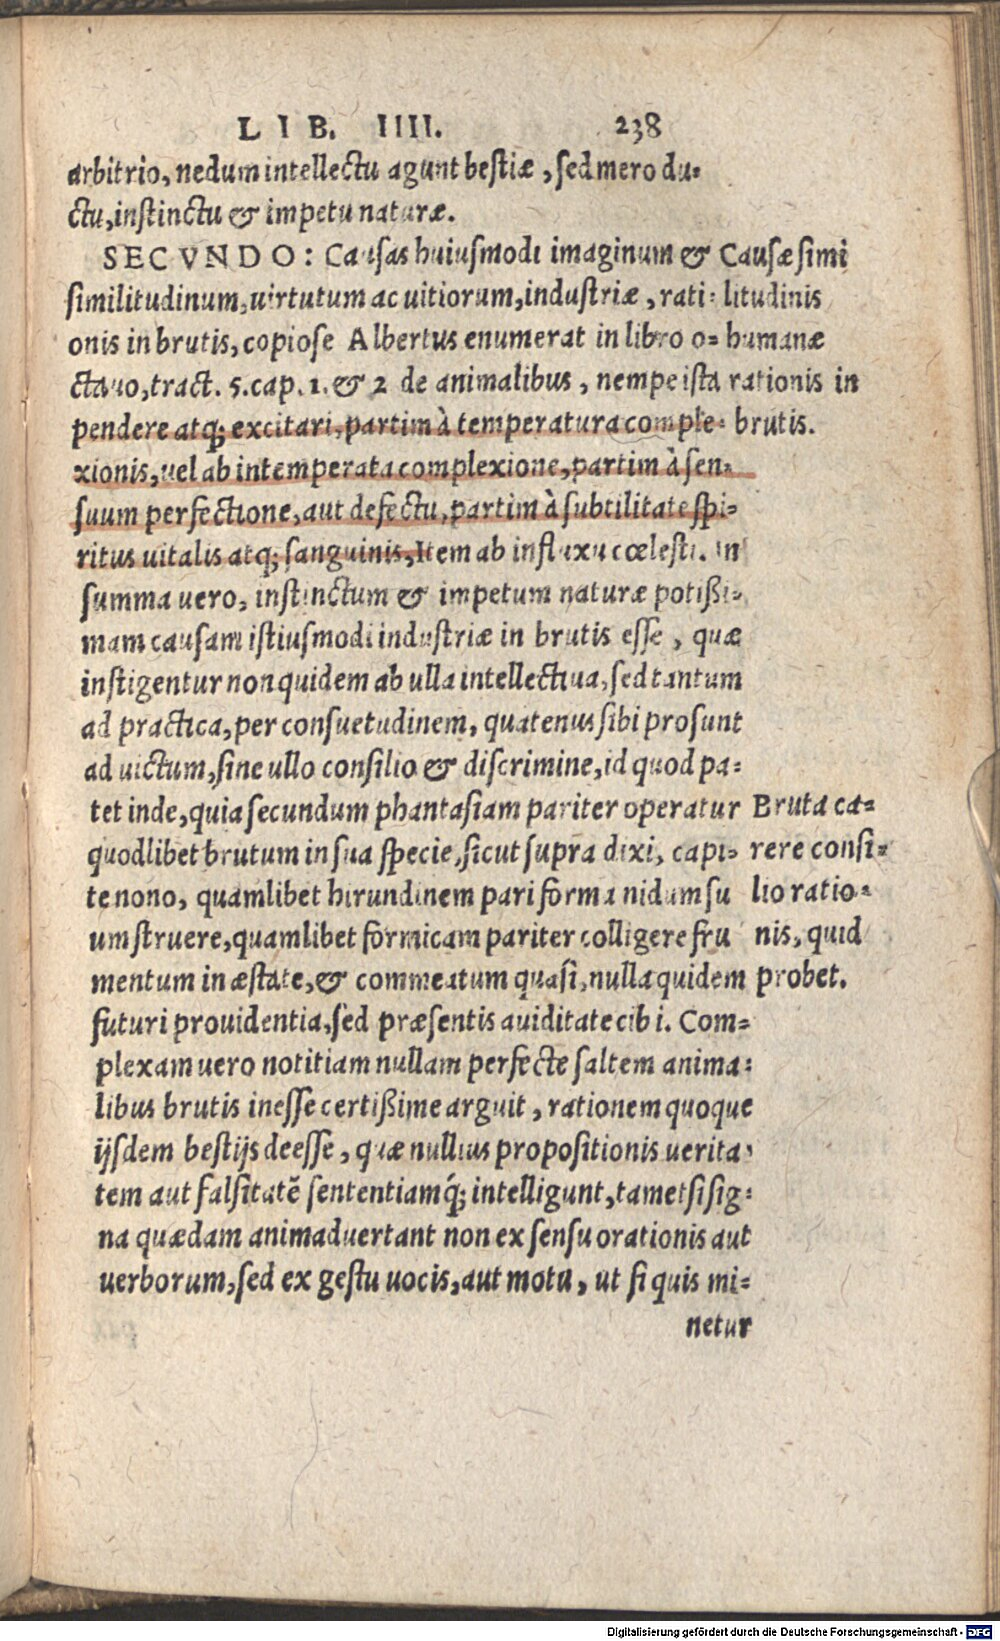 LIB. IIII. 238
arbitrio, nedum intellectu agunt bestiæ, sed mero du-
ctu, instinctu & impetu naturæ.
SECVNDO: Causas huiusmodi imaginum &
similitudinum, uirtutum ac uitiorum, industriæ, rati-
onis in brutis, copiose Albertus enumerat in libro o-
ctauo, tract. 5. cap. 1. & 2 de animalibus, nempe ista
pendere atq; excitari, partim à temperatura comple-
xionis, uel ab intemperata complexione, partim à sen-
suum perfectione, aut defectu, partim à subtilitate spi-
ritus uitalis atq; sanguinis, Item ab influxu cœlesti. In
summa uero, instinctum & impetum naturæ potißi-
mam causam istiusmodi industriæ in brutis esse, quæ
instigentur non quidem ab ulla intellectiua, sed tantum
ad practica, per consuetudinem, quatenus sibi prosunt
ad uictum, sine ullo consilio & discrimine, id quod pa-
tet inde, quia secundum phantasiam pariter operatur
quodlibet brutum in sua specie, sicut supra dixi, capi-
te nono, quamlibet hirundinem pari forma nidum su
um struere, quamlibet formicam pariter colligere fru
mentum in æstate, & commeatum quasi, nulla quidem
futuri prouidentia, sed præsentis auiditate cibi. Com-
plexam uero notitiam nullam perfecte saltem anima-
libus brutis inesse certißime arguit, rationem quoque
ijsdem bestijs deesse, quæ nullius propositionis uerita-
tem aut falsitatē sententiamq́; intelligunt, tametsi sig-
na quædam animaduertant non ex sensu orationis aut
uerborum, sed ex gestu uocis, aut motu, ut si quis mi-
netur
Causæ simi
litudinis
humanæ
rationis in
brutis.
Bruta ca-
rere consi-
lio ratio-
nis, quid
probet.
Digitalisierung gefördert durch die Deutsche Forschungsgemeinschaft - DFG